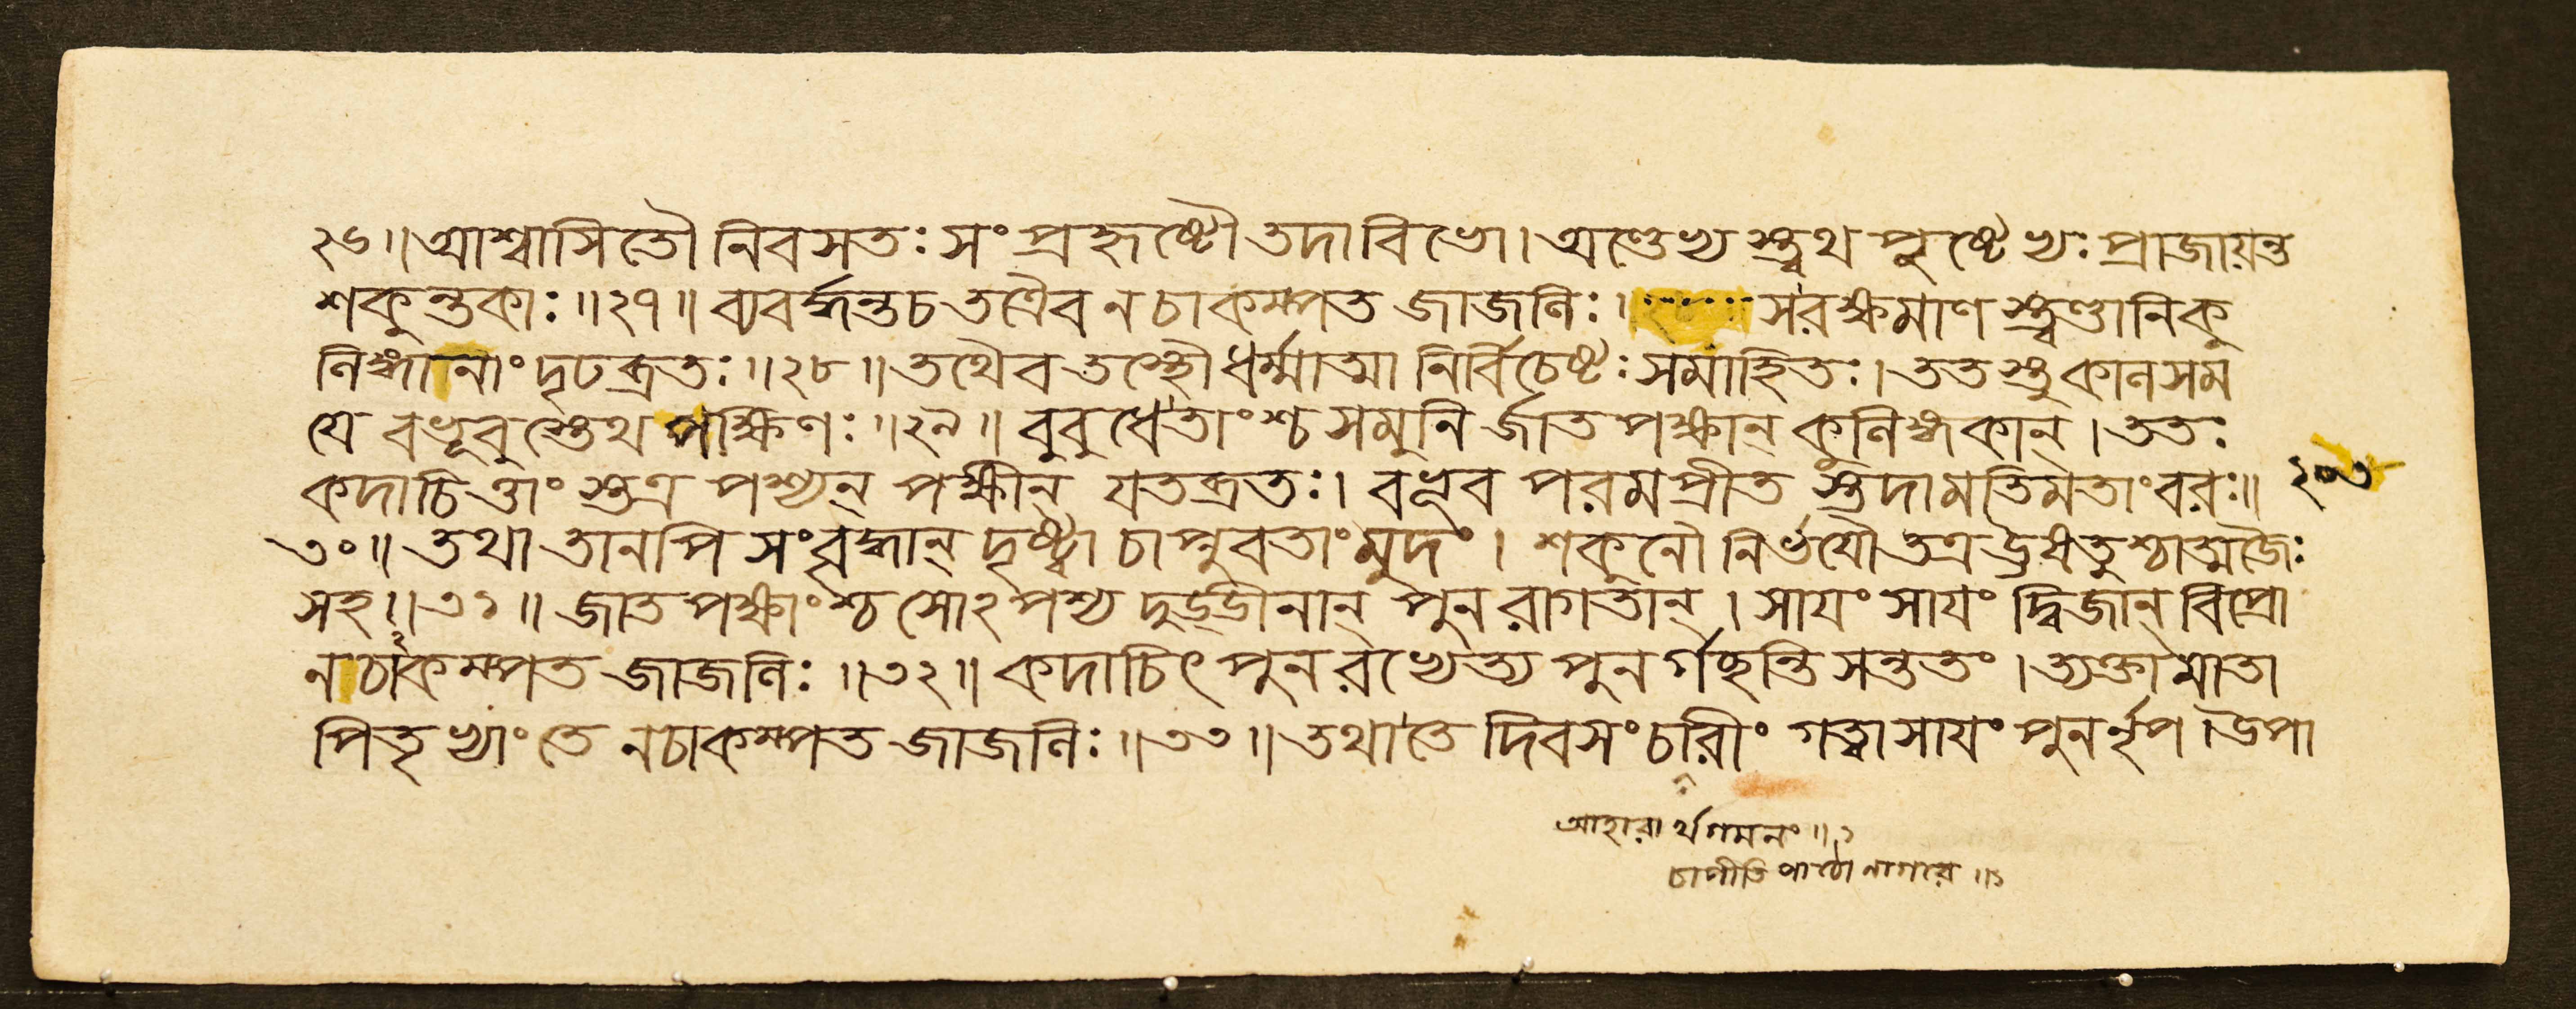 ২৬॥ আশ্বাসিতৌ নিবসতঃ সংপ্রহৃষ্টৌ তদা বিভো। অণ্ডেভ্য স্ত্বথ পুষ্টেভ্যঃ প্রাজায়ন্ত
শকুন্তকাঃ॥২৭॥ ব্যবর্দ্ধন্ত চ তত্রৈব ন চাকম্পত জাজলিঃ। স রক্ষমাণ স্ত্বণ্ডানি কু
লিঙ্গানাং দৃঢব্রতঃ॥২৮॥ তথৈব তস্থৌ ধর্ম্মাত্মা নির্বিচেষ্টঃ সমাহিতঃ। ততস্তু কালসম
যে বভূবুস্তেথ পক্ষিণঃ॥২৯॥ বুবুধে তাংশ্চ স মুনি র্জাতপক্ষান্ কুলিঙ্গকান্। ততঃ
কদাচিত্তাং স্তত্র পশ্যন্ পক্ষীন্ যতব্রতঃ। বভূব পরমপ্রীত স্তদা মতিমতাং বরঃ॥ ২০৩
৩০॥ তথা তানপি সংবৃদ্ধান্ দৃষ্ট্বা চাপ্নুবতাং মুদং। শকুনৌ নির্ভযৌ তত্র ঊষতুশ্চাত্মজৈঃ
সহ॥৩১॥ জাতপক্ষাংশ্চ সোঽপশ্য দুড্ডীনান্ পুনরাগতান্। সাযং সাযং দ্বিজান্ বিপ্রো
ন চাকম্পত জাজলিঃ॥৩২॥ কদাচিৎ পুনরভ্যেত্য পুনর্গছন্তি সন্ততং। ত্যক্তা মাতা
পিতৃভ্যাং তে ন চাকম্পত জাজলিঃ॥৩৩॥ তথা তে দিবসং চারীং গত্বা সাযং পুনর্নৃপ। উপা
আহারার্থগমনং॥১
চারীতি পাঠো নাগরে॥১